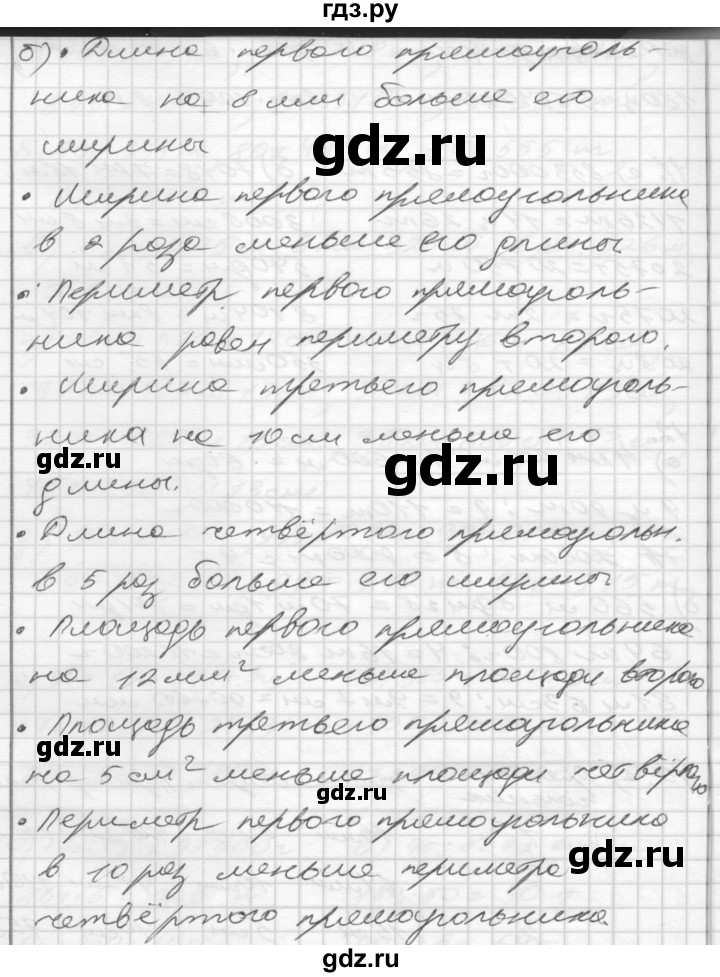 гдз.ру
б) • Длина первого прямоуголь-
ника на 8 мм больше его
ширины
gdz.ru
• Ширина первого прямоугольника
в 2 раза меньше его длины
• Периметр первого прямоуголь-
ника равен периметру второго.
• Ширина третьего прямоуголь-
ника на 10 см меньше его
gdz.ru
gdz.ru
длины.
• Длина четвёртого прямоугольн.
в 5 раз больше его ширины
• Площадь первого прямоугольника
на 12 мм² меньше площади второго
• Площадь третьего прямоугольника
gdz.ru
на 5 см² меньше площади четвёртого
gdz.ru
• Периметр первого прямоугольника
в 10 раз меньше периметра
gdz.ru
четвёртого прямоугольника